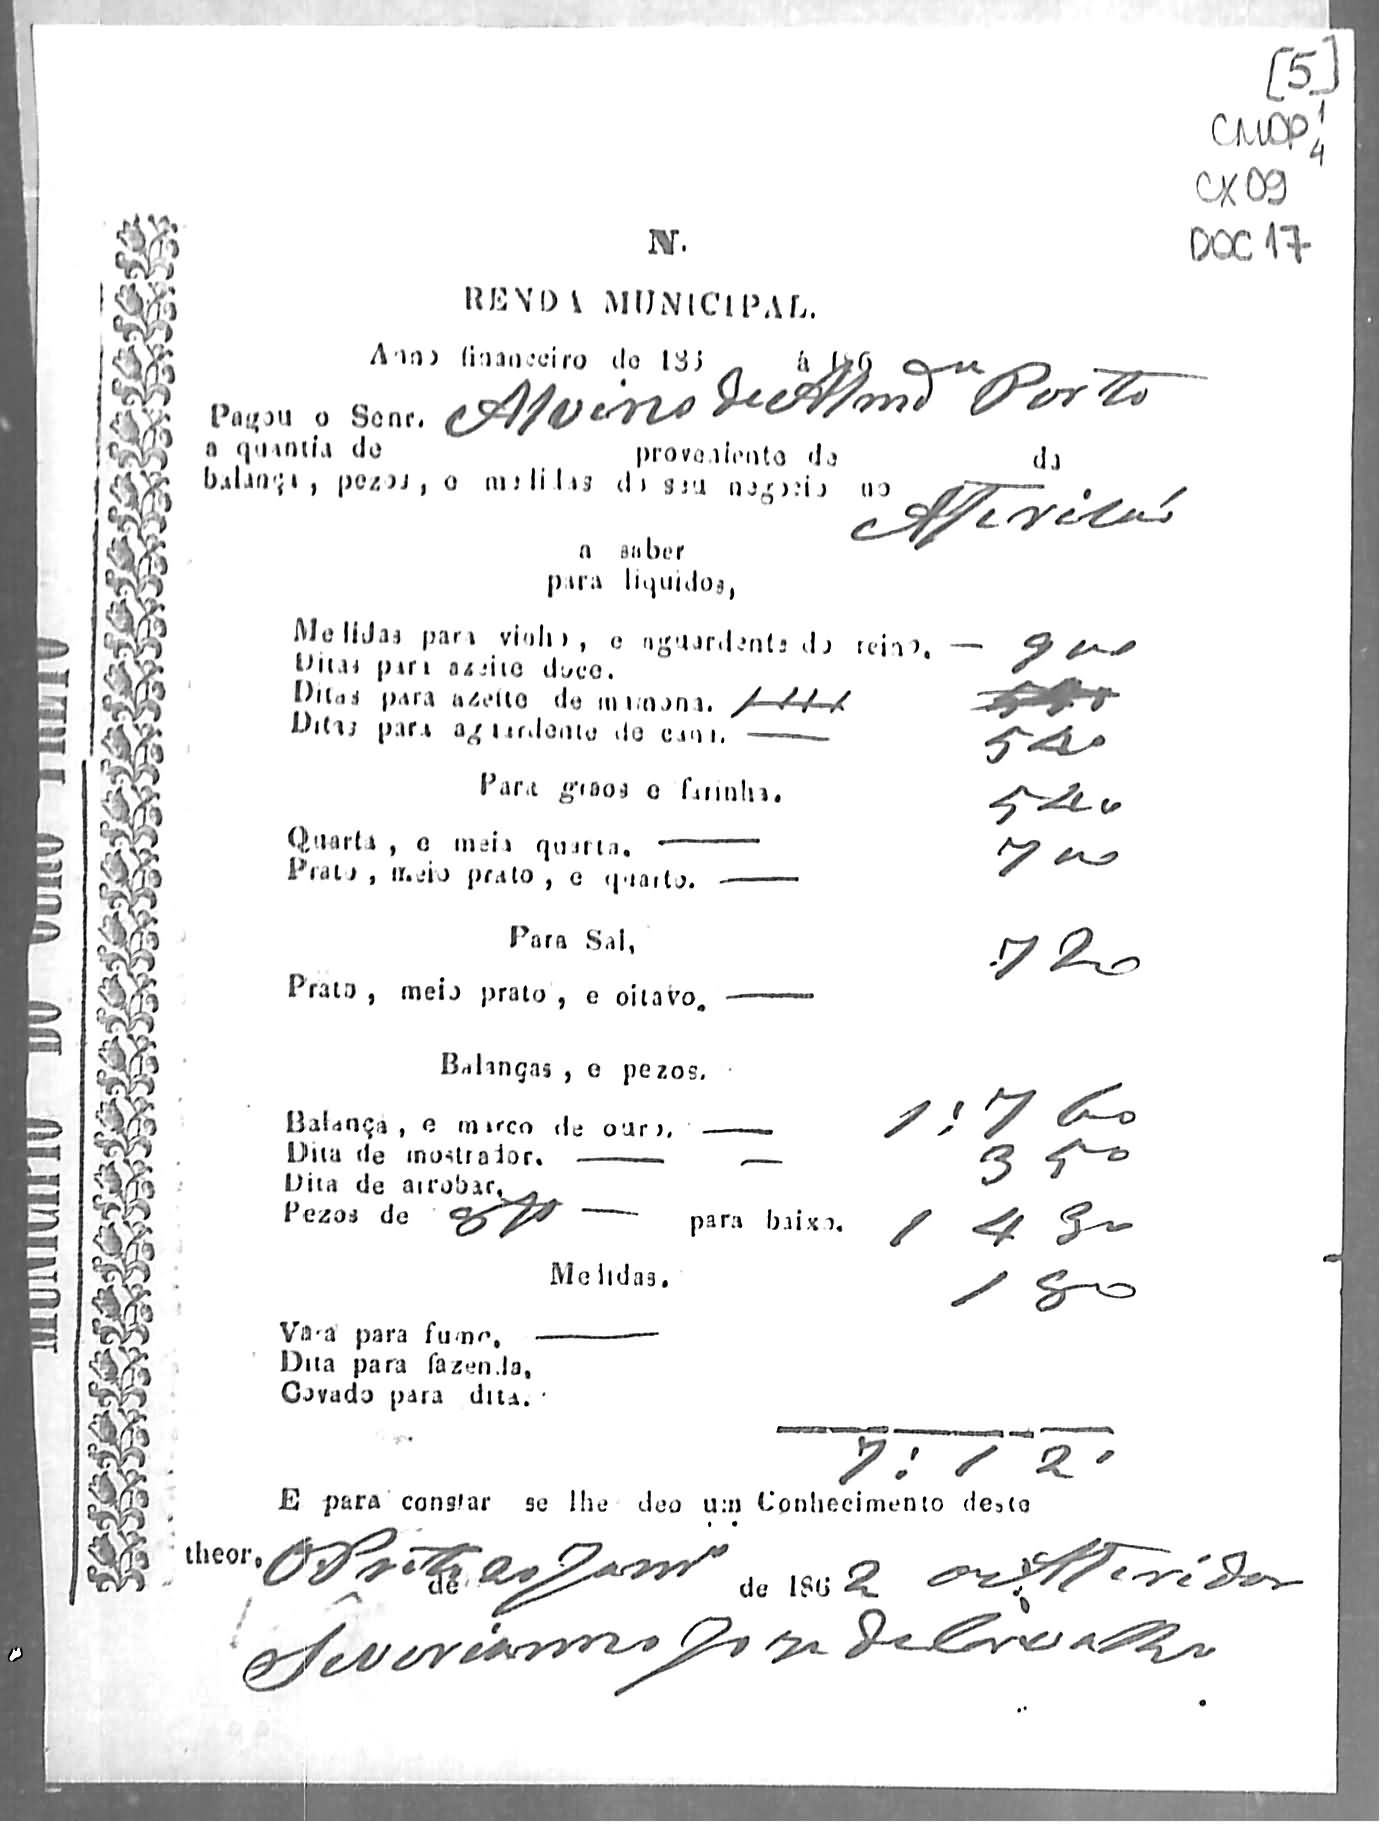 [5]
CMOP 1/4
CX 09
DOC 17
MUNICIPIO DO OURO PRETO
N.
RENDA MUNICIPAL.
Anno financeiro de 185 á 186
Pagou o Senr. Alvino de Almda Porto
a quantia de proveniente de da
balança, pezos, e medidas do seu negocio no
a saber
para liquidos,
Medidas para vinho, e aguardente do reino. — 900
Ditas para azeite doce.
Ditas para azeite de mamona.
Ditas para aguardente de cana. — 540
Para graos e farinha. 540
Quarta, e meia quarta. — 700
Prato, meio prato, e quarto. —
Para Sal, 720
Prato, meio prato, e oitavo. —
Balanças, e pezos.
Balança, e marco de ouro. — 1:760
Dita de mostrador. — — 350
Dita de arrobar.
Pezos de 8 — para baixo. 1430
Medidas. 180
Vara para fumo, —
Dita para fazenda,
Covado para dita.
7:120
E para constar se lhe deo um Conhecimento deste
theor. O Preto 20 de Janro de 1862 o Aferidor
Severianno Joze de Carvalho